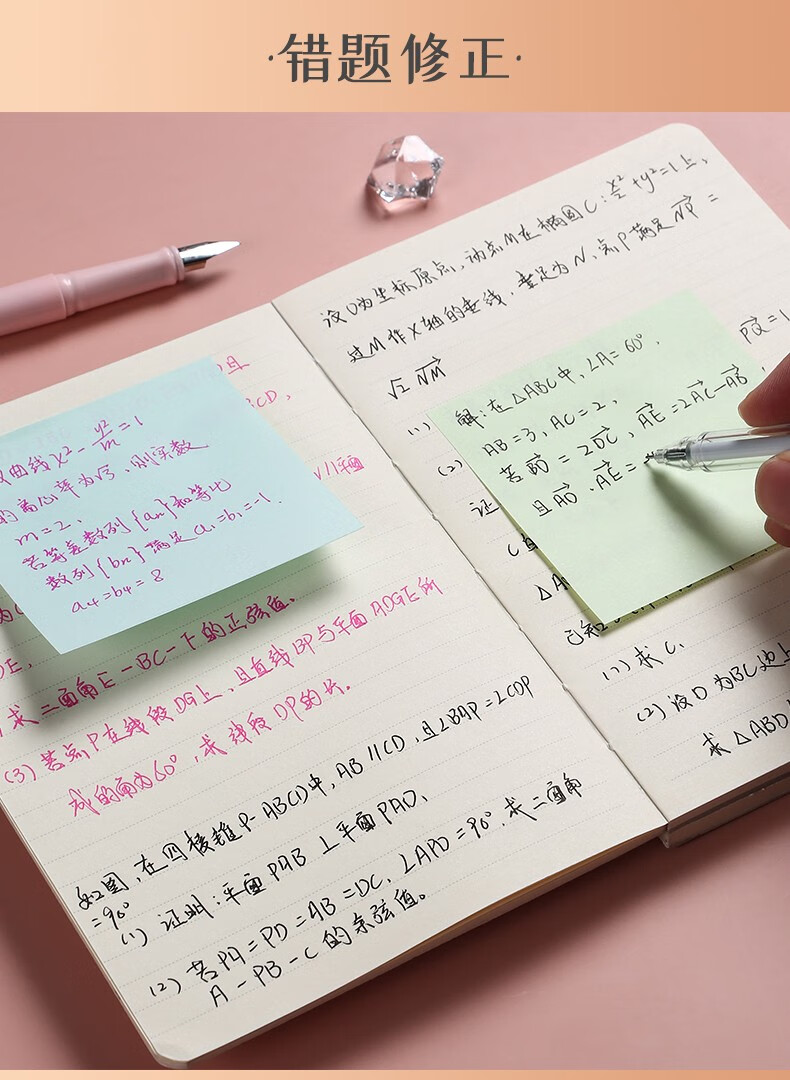 ·错题修正·
且
CD,
双曲线x²-y²/m=1
的离心率为√5,则实数
m=2,
若等差数列{an}和等比
数列{bn}满足a₁=b₁=-1.
a₄=b₄=8
√//平面
DE,
求二面角E-BC-F的正弦值.
(3)若点P在线段DG上,且直线BP与平面ADGE所
成的角为60°,求线段DP的长.
如图,在四棱锥P-ABCD中,AB//CD,且∠BAP=∠CDP
=90°
(1)证明:平面PAB⊥平面PAD,
(2)若PA=PD=AB=DC,∠APD=90°,求二面角
A-PB-C的余弦值。
设O为坐标原点,动点M在椭圆C:x²/2+y²=1上,
过M作x轴的垂线,垂足为N,点P满足NP=
√2 NM
PQ=1
(1)
(2)
证
C
△A
解:在△ABC中,∠A=60°,
AB=3,AC=2,
若BD=2DC,AE=2AC-AB,
且AD·AE=
已知
(1)求C,
(2)设D为BC边上
求△ABD